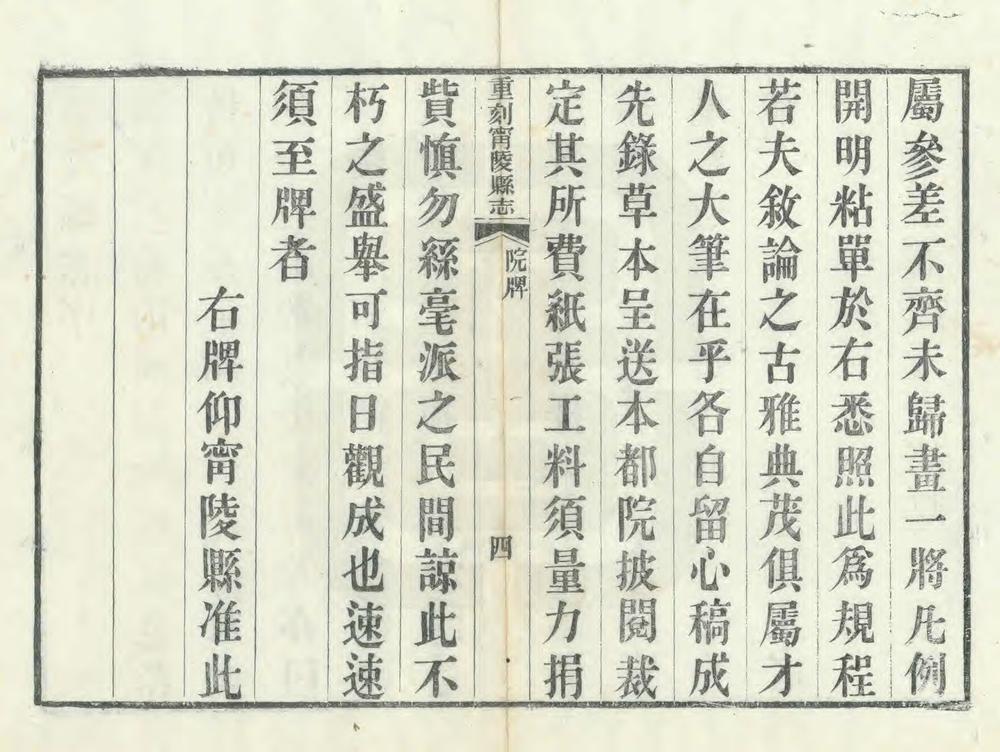 屬參差不齊未歸畫一將凡例
開明粘單於右悉照此爲規程
若夫敘論之古雅典茂俱屬才
人之大筆在乎各自留心稿成
先錄草本呈送本都院披閱裁
定其所費紙張工料須量力捐
重刻甯陵縣志
院牌
四
貲慎勿絲毫派之民間諒此不
朽之盛舉可指日觀成也速速
須至牌者
右牌仰甯陵縣准此